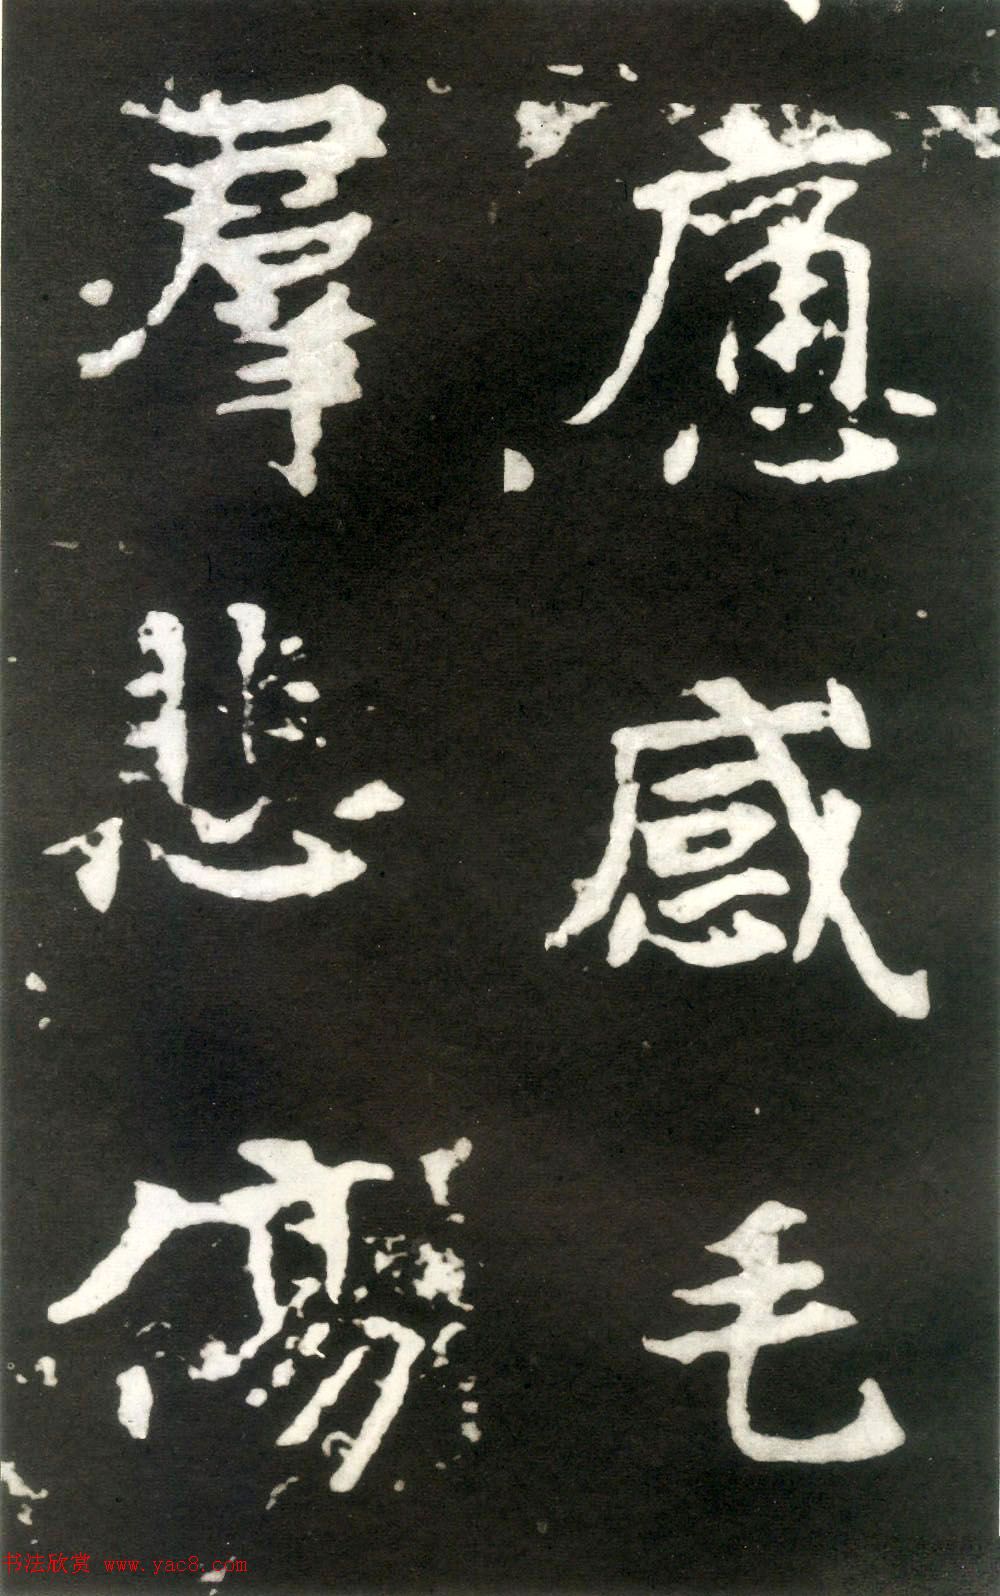 應感毛
羣悲傷
书法欣赏 www.yac8.com